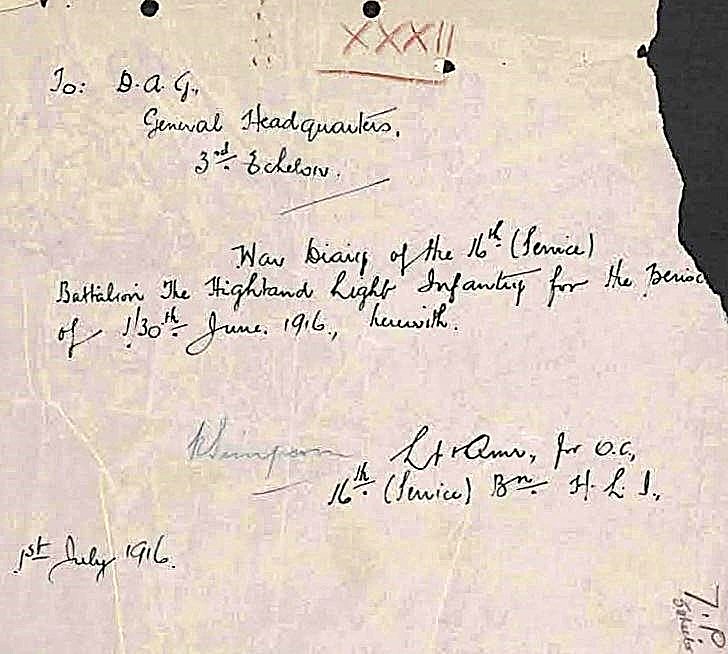 XXXII
To: D.A.G.,
General Headquarters,
3rd Echelon.
War Diary of the 16th (Service)
Battalion The Highland Light Infantry for the Period
of 1/30th June. 1916., herewith.
Simpson Lt & Qmr, for O.C.,
16th (Service) Bn. H.L.I.,
1st July 1916.